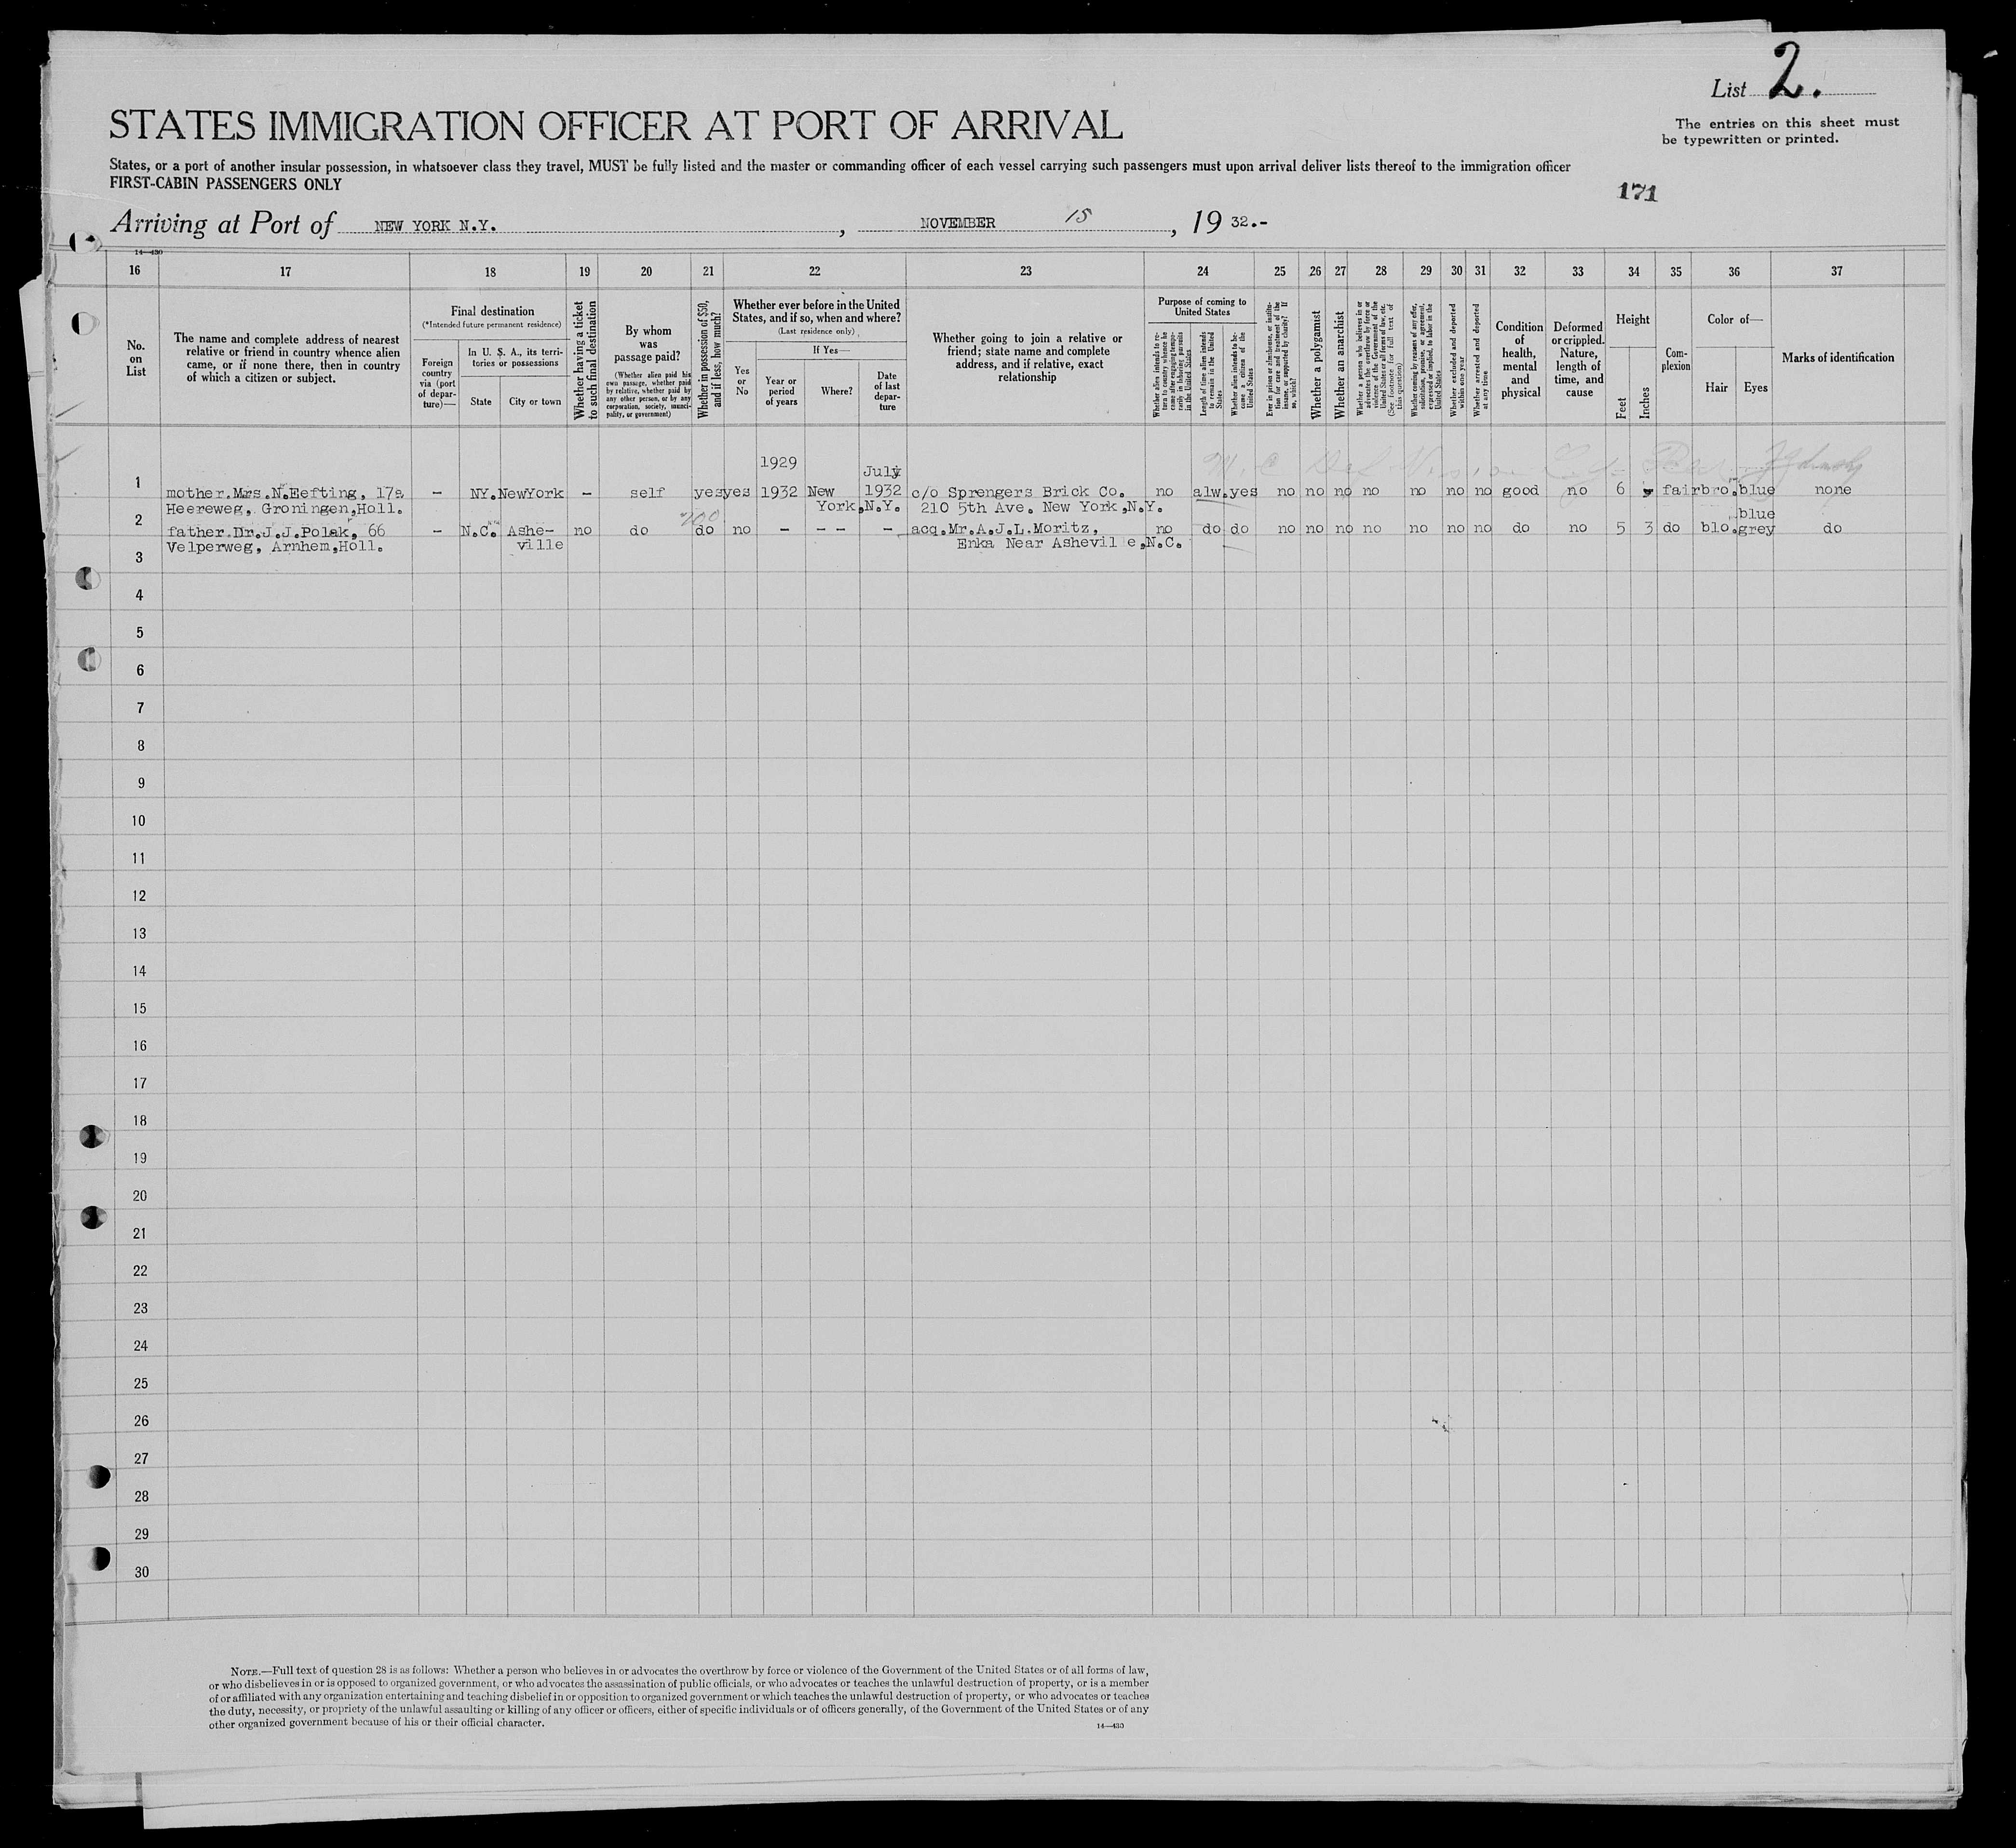 List 2.
The entries on this sheet must
be typewritten or printed.
STATES IMMIGRATION OFFICER AT PORT OF ARRIVAL
States, or a port of another insular possession, in whatsoever class they travel, MUST be fully listed and the master or commanding officer of each vessel carrying such passengers must upon arrival deliver lists thereof to the immigration officer
FIRST-CABIN PASSENGERS ONLY
171
Arriving at Port of NEW YORK N.Y. , NOVEMBER 15 , 19 32.-
14—430
16 17 18 19 20 21 22 23 24 25 26 27 28 29 30 31 32 33 34 35 36 37
No.
on
List
The name and complete address of nearest
relative or friend in country whence alien
came, or if none there, then in country
of which a citizen or subject.
Final destination
(*Intended future permanent residence)
Foreign
country
via (port
of depar-
ture)—
In U. S. A., its terri-
tories or possessions
State
City or town
Whether having a ticket
to such final destination
By whom
was
passage paid?
(Whether alien paid his
own passage, whether paid
by relative, whether paid by
any other person, or by any
corporation, society, munici-
pality, or government)
Whether in possession of $50,
and if less, how much?
Whether ever before in the United
States, and if so, when and where?
(Last residence only)
Yes
or
No
If Yes—
Year or
period
of years
Where?
Date
of last
depar-
ture
Whether going to join a relative or
friend; state name and complete
address, and if relative, exact
relationship
Purpose of coming to
United States
Whether alien intends to re-
turn to country whence he
came after engaging tempo-
rarily in laboring pursuits
in the United States
Length of time alien intends
to remain in the United
States
Whether alien intends to be-
come a citizen of the
United States
Ever in prison or almshouse, or institu-
tion for care and treatment of the
insane, or supported by charity? If
so, which?
Whether a polygamist
Whether an anarchist
Whether a person who believes in or
advocates the overthrow by force or
violence of the Government of the
United States or all forms of law, etc.
(See footnote for full text of
this question)
Whether coming by reasons of any offer,
solicitation, promise, or agreement,
expressed or implied, to labor in the
United States
Whether excluded and deported
within one year
Whether arrested and deported
at any time
Condition
of
health,
mental
and
physical
Deformed
or crippled.
Nature,
length of
time, and
cause
Height
Feet
Inches
Com-
plexion
Color of—
Hair
Eyes
Marks of identification
1929 July
1 mother.Mrs.N.Eefting, 17a - NY. NewYork - self yes yes 1932 New 1932 c/o Sprengers Brick Co. no alw. yes no no no no no no no good no 6 fair bro. blue none
Heereweg, Groningen,Holl. York,N.Y. 210 5th Ave. New York,N.Y.
200 blue
2 father.Dr.J.J.Polak, 66 - N.C. Ashe- no do do no - - - - acq.Mr.A.J.L.Moritz, no do do no no no no no no no do no 5 3 do blo. grey do
Velperweg, Arnhem,Holl. ville Enka Near Ashevil e,N.C.
3
4
5
6
7
8
9
10
11
12
13
14
15
16
17
18
19
20
21
22
23
24
25
26
27
28
29
30
NOTE.—Full text of question 28 is as follows: Whether a person who believes in or advocates the overthrow by force or violence of the Government of the United States or of all forms of law,
or who disbelieves in or is opposed to organized government, or who advocates the assassination of public officials, or who advocates or teaches the unlawful destruction of property, or is a member
of or affiliated with any organization entertaining and teaching disbelief in or opposition to organized government or which teaches the unlawful destruction of property, or who advocates or teaches
the duty, necessity, or propriety of the unlawful assaulting or killing of any officer or officers, either of specific individuals or of officers generally, of the Government of the United States or of any
other organized government because of his or their official character.
14—430